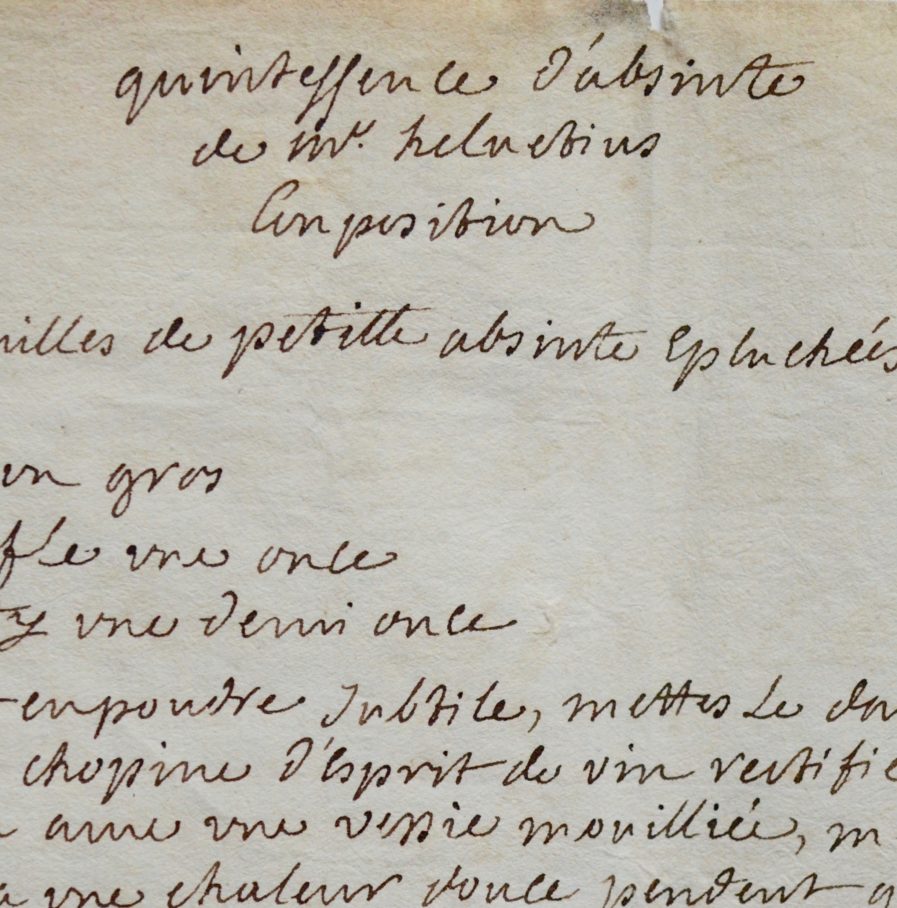 quintessence d'absinte
de mr. helvetius
Conposition
uilles de petitte absinte Epluchées
un gros
fle une once
une demi once
enpoudre Subtile, mettes Le dou
chopine d'Esprit de vin rectifie
avec une vessie mouilliée, m
a une chaleur douce pendent q